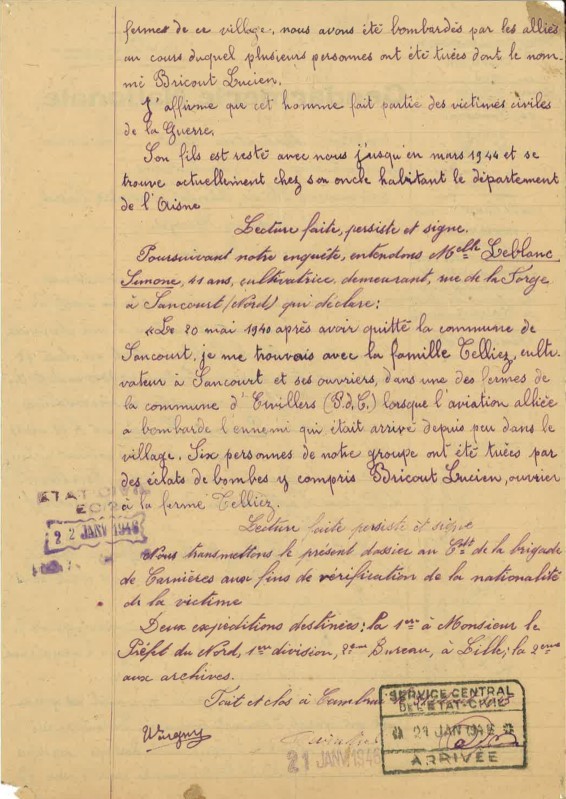 fermes de ce village, nous avons été bombardés par les alliés
au cours duquel plusieurs personnes ont été tuées dont le nom-
mé Bricout Lucien.
J'affirme que cet homme fait partie des victimes civiles
de la Guerre.
Son fils est resté avec nous jusqu'en mars 1944 et se
trouve actuellement chez son oncle habitant le département
de l'Aisne
Lecture faite, persiste et signe.
Poursuivant notre enquête, entendons Melle Leblanc
Simone, 41 ans, cultivatrice, demeurant, rue de la Forge
à Sancourt (Nord) qui déclare:
"Le 20 mai 1940 après avoir quitté la commune de
Sancourt, je me trouvais avec la famille Telliez, culti-
vateur à Sancourt et ses ouvriers, dans une des fermes de
la commune d'Ervillers (P.d.C.) lorsque l'aviation alliée
a bombardé l'ennemi qui était arrivé depuis peu dans le
village. Six personnes de notre groupe ont été tuées par
des éclats de bombes y compris Bricout Lucien, ouvrier
à la ferme Telliez.
Lecture faite persiste et signe
Nous transmettons le présent dossier au Ct de la brigade
de Carnières aux fins de vérification de la nationalité
de la victime
Deux expéditions destinées: la 1ère à Monsieur le
Préfet du Nord, 1ère division, 2ème Bureau, à Lille; la 2ème
aux archives.
Fait et clos à Cambrai
ETAT CIVIL
22 JANV 1946
21 JANV 1946
SERVICE CENTRAL
DE L'ETAT-CIVIL
21 JAN 1946
ARRIVÉE